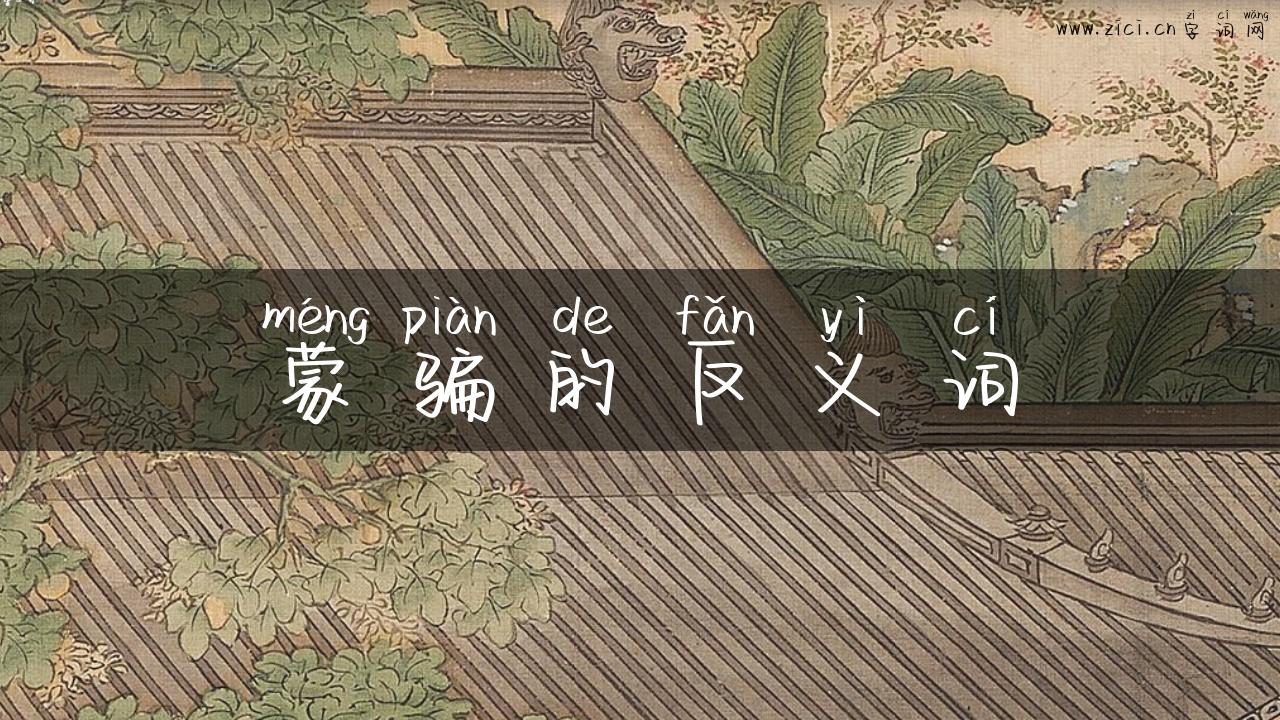 zì cí wǎng
www.zici.cn 字词网
méng piàn de fǎn yì cí
蒙骗的反义词